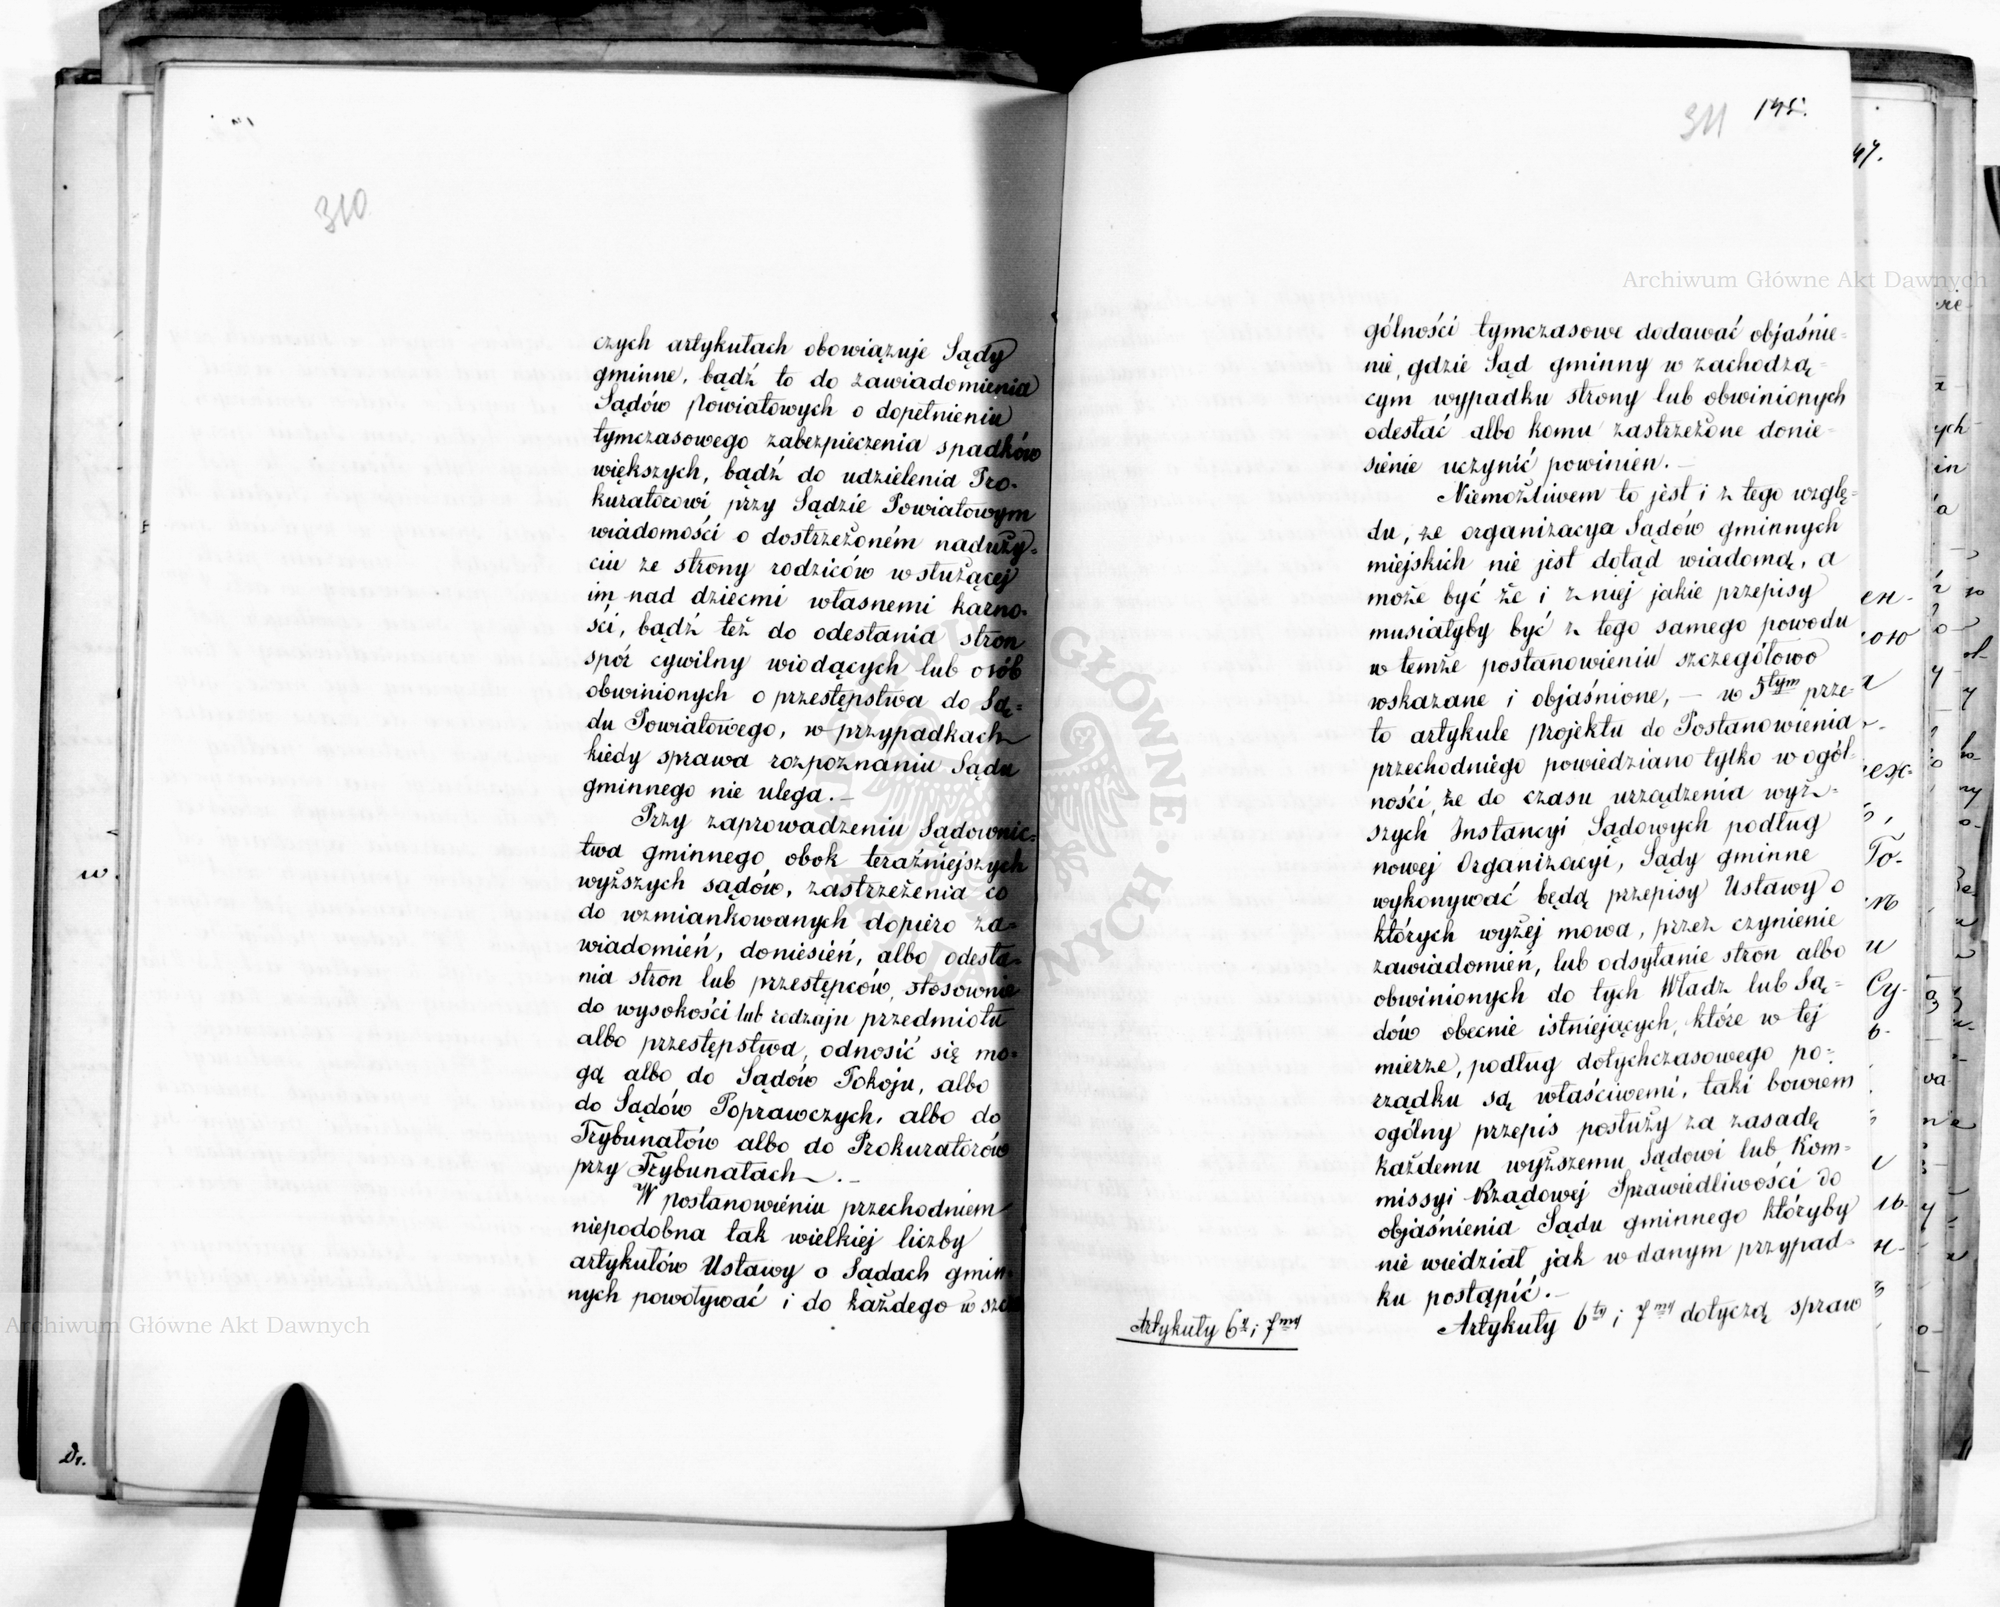 310
czych artykułach obowiązuje Sądy
gminne, bądź to do zawiadomienia
Sądów Powiatowych o dopełnieniu
tymczasowego zabezpieczenia spadków
większych, bądź do udzielenia Pro-
kuratorowi przy Sądzie Powiatowym
wiadomości o dostrzeżoném naduży-
ciu ze strony rodziców w służącej
im nad dziećmi własnemi karno-
ści, bądź też do odesłania stron
spór cywilny wiodących lub osób
obwinionych o przestępstwa do Są-
du Powiatowego, w przypadkach
kiedy sprawa rozpoznaniu Sądu
gminnego nie ulega.—
Przy zaprowadzeniu Sądownic-
twa gminnego obok teraźniejszych
wyższych sądów, zastrzeżenia co
do wzmiankowanych dopiero za-
wiadomień, doniesień, albo odesła-
nia stron lub przestępców, stosownie
do wysokości lub rodzaju przedmiotu
albo przestępstwa, odnosić się mo-
gą albo do Sądów Pokoju, albo
do Sądów Poprawczych, albo do
Trybunałów albo do Prokuratorów
przy Trybunałach.—
W postanowieniu przechodniem
niepodobna tak wielkiej liczby
artykułów Ustawy o Sądach gmin-
nych powoływać i do każdego w szcze
311 145.
gólności tymczasowe dodawać objaśnie-
nie, gdzie Sąd gminny w zachodzą-
cym wypadku strony lub obwinionych
odesłać albo komu zastrzeżone donie-
sienie uczynić powinien.—
Niemożliwem to jest i z tego wzglę-
du, że organizacya Sądów gminnych
miejskich nie jest dotąd wiadomą, a
może być że i z niej jakie przepisy
musiałyby być z tego samego powodu
w temże postanowieniu szczegółowo
wskazane i objaśnione,— w 5tym prze-
to artykule Projektu do Postanowienia
przechodniégo powiedziano tylko w ogól-
ności, że do czasu urządzenia wyż-
szych Instancyi Sądowych podług
nowej Organizacyi, Sądy gminne
wykonywać będą przepisy Ustawy o
których wyżej mowa, przez czynienie
zawiadomień, lub odsyłanie stron albo
obwinionych do tych Władz lub Są-
dów obecnie istniejących, które w tej
mierze, podług dotychczasowego po-
rządku są właściwemi, taki bowiem
ogólny przepis posłuży za zasadę
każdemu wyższemu Sądowi lub Kom-
missyi Rządowej Sprawiedliwości do
objaśnienia Sądu gminnego któryby
nie wiedział jak w danym przypad-
ku postąpić.—
Artykuły 6 i 7my
Artykuły 6ty i 7my dotyczą spraw
47.
Archiwum Główne Akt Dawnych
Archiwum Główne Akt Dawnych
ARCHIWUM GŁÓWNE AKT DAWNYCH